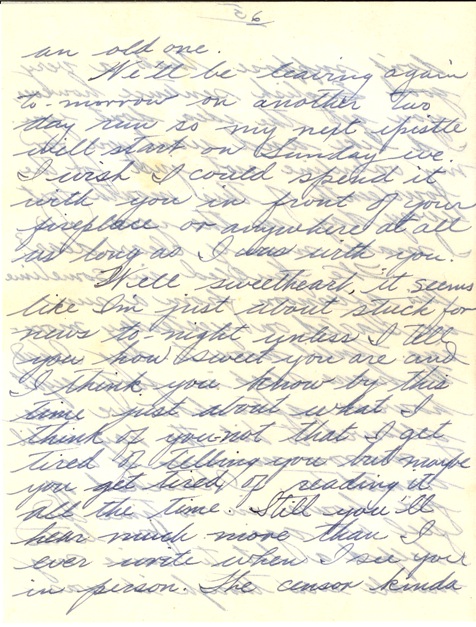 6
an old one.
We'll be leaving again
to-morrow on another two
day run so my next epistle
will start on Sunday eve.
I wish I could spend it
with you in front of your
fireplace or anywhere at all
as long as I was with you.
Well sweetheart, it seems
like I'm just about stuck for
news to-night unless I tell
you how sweet you are and
I think you know by this
time just about what I
think of you-not that I get
tired of telling you but maybe
you get tired of reading it
all the time. Still you'll
hear much more than I
ever write when I see you
in person. The censor kinda